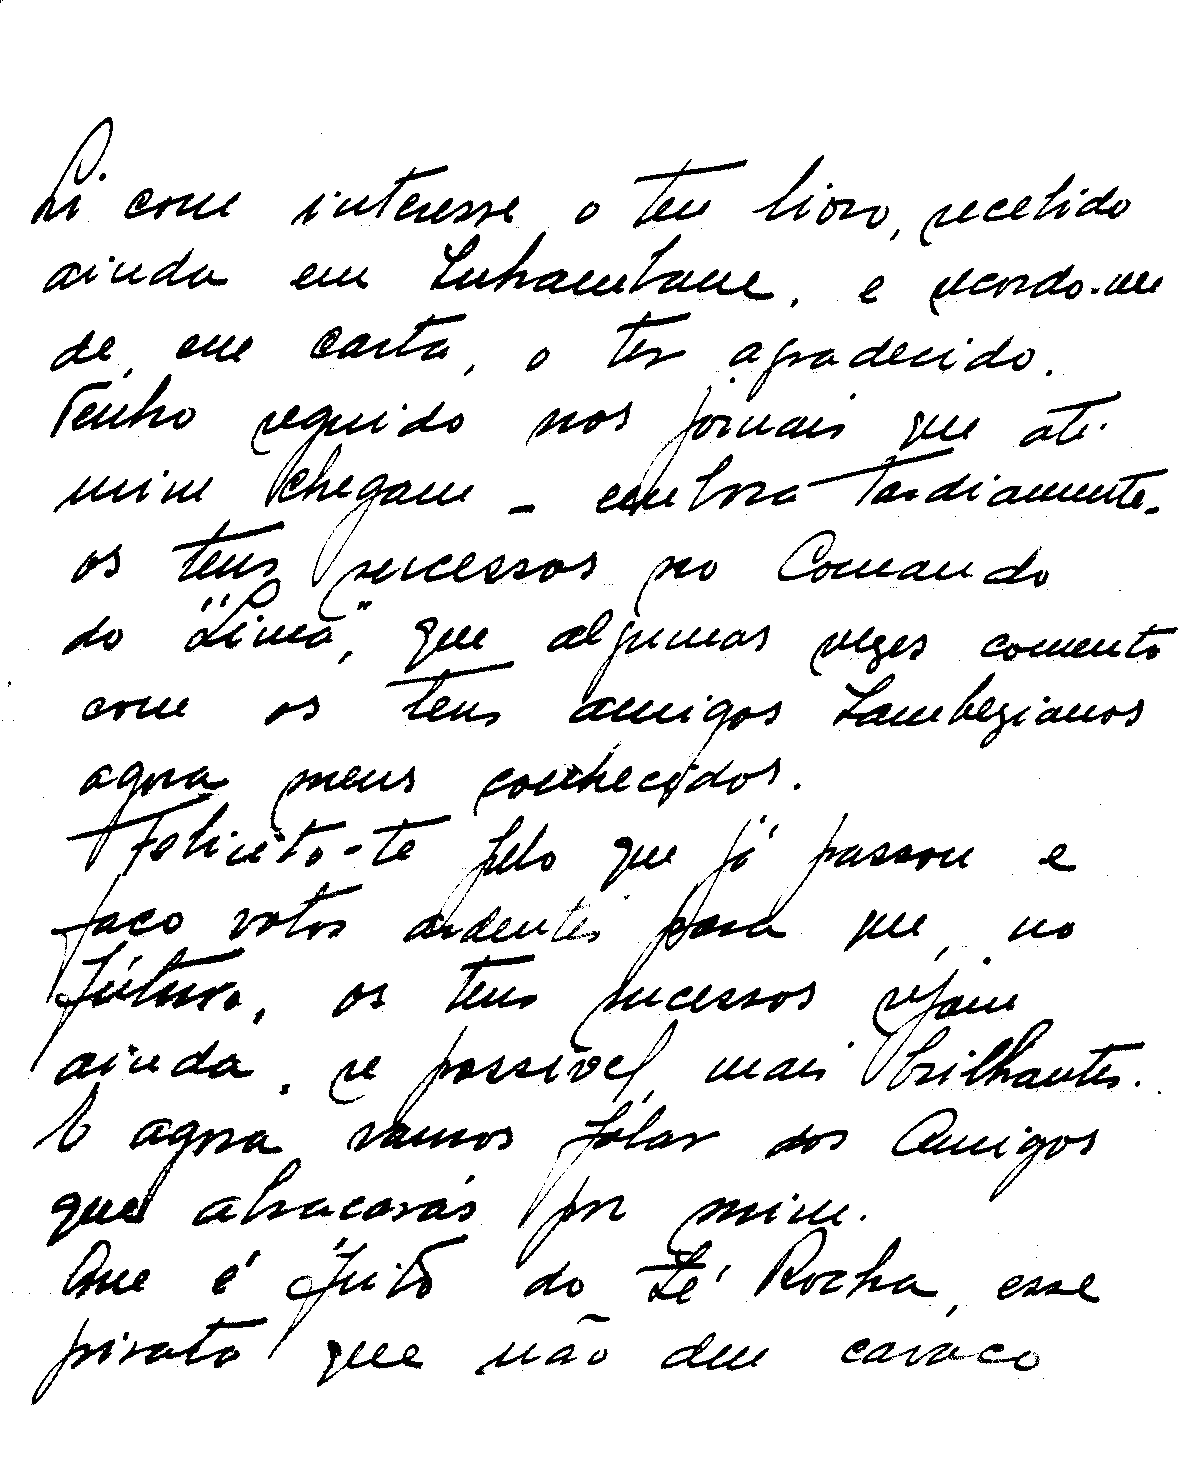 Li com interesse o teu livro, recebido
ainda em Inhambane, e recordo-me
de, em carta, o ter agradecido.
Tenho seguido nos jornais que até
mim chegam - embora tardiamente -
os teus sucessos no Comando
do "Lima", que algumas vezes comento
com os teus amigos Zambezianos
agora meus conhecidos.
Felicito-te pelo que já passou e
faço votos ardentes para que, no
futuro, os teus sucessos sejam
ainda, se possível, mais brilhantes.
E agora vamos falar dos Amigos
que abraçarás por mim.
Que é feito do Zé Rocha, esse
pirata que não deu cavaco